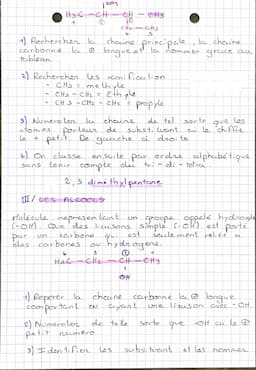 CH3
H3C - CH - CH - CH3
CH2 - CH3
1) Rechercher la chaine principale, la chaine
carbonné la ⊕ longue et la nommer grace au
tableau
2) Rechercher les ramification
- CH3 = methyle
- CH2 - CH3 = Ethyle
- CH3 - CH2 - CH2 = propyle
3) Numeroter la chaine de tel sorte que les
atomes porteur de substituant ai le chiffre
le + petit. De gauche à droite
4) On classe ensuite par ordre alphabétique
sans tenir compte du tri-di-tetra
2,3 diméthylpentane
III/ LES ALCOOLS
Molecule representant un groupe appelé hydroxyle
(-OH). Que des liaisons simple (-OH) est porté
par un carbone qui est seulement relié a
des carbones ou hydrogene.
4 3 2 1
H3C - CH2 - CH - CH3
OH
1) Reperer la chaine carboné la ⊕ longue
comportant ou ayant une liaison avec -OH.
2) Numeroter de telle sorte que -OH ai le ⊕
petit numéro
3) Identifier les substituant et les nommer